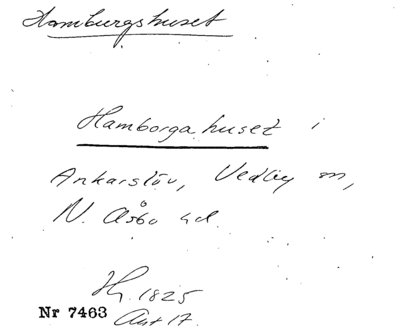 Hamburgshuset
Hamborgahuset i
Ankarslöv, Vedby sn,
N. Åsbo hd.
Hg. 1825
Nr 7463
Avt 17.